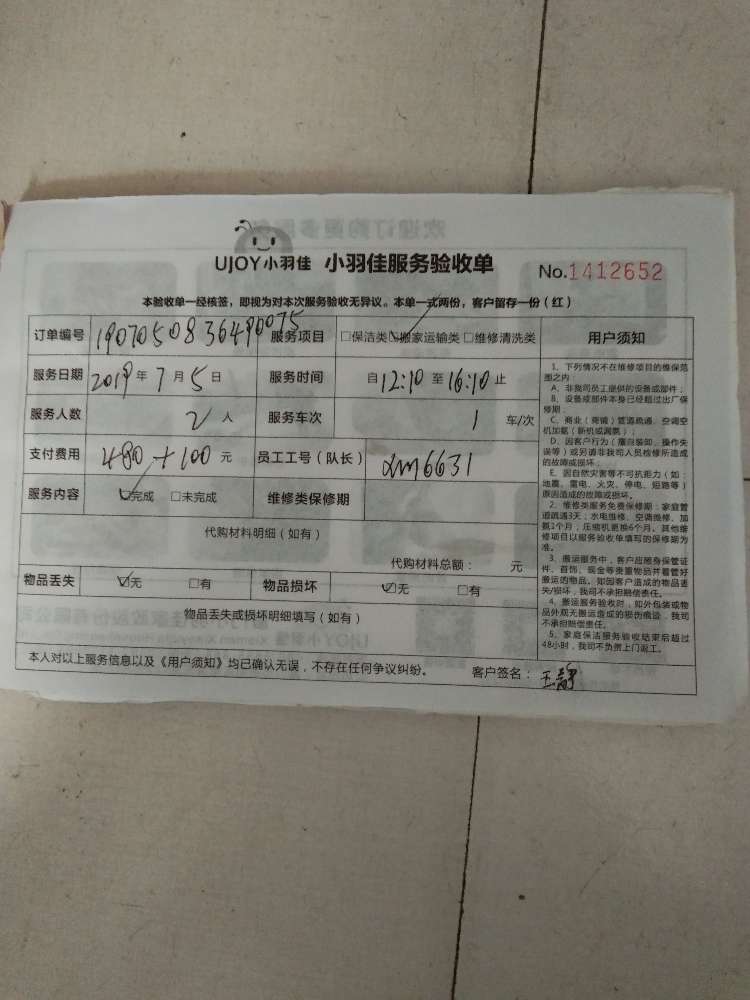 UJOY小羽佳 小羽佳服务验收单 No.1412652
本验收单一经核签，即视为对本次服务验收无异议。本单一式两份，客户留存一份（红）
订单编号 1907050836490075 服务项目 □保洁类☑搬家运输类□维修清洗类
服务日期 2019年7月5日 服务时间 自12:10至16:10止
服务人数 2人 服务车次 1 车/次
支付费用 480+100元 员工工号（队长） xm6631
服务内容 ☑完成 □未完成 维修类保修期
代购材料明细（如有）
代购材料总额： 元
物品丢失 ☑无 □有 物品损坏 ☑无 □有
物品丢失或损坏明细填写（如有）
本人对以上服务信息以及《用户须知》均已确认无误，不存在任何争议纠纷。 客户签名：王静
用户须知
1、下列情况不在维修项目的维保范
围之内：
A、非我司员工提供的设备或部件；
B、设备或部件本身已经超过出厂保
修期；
C、商业（商铺）管道疏通、空调空
机加氨（新机或漏氨）；
D、因客户行为（擅自装卸、操作失
误等）或另请非我司人员检修所造成
的故障或损坏；
E、因自然灾害等不可抗拒力（如：
地震、雷电、火灾、停电、短路等）
原因造成的故障或损坏。
2、维修类服务免费保修期：家庭管
道疏通3天；水电维修、空调维修、加
氨1个月；压缩机更换6个月。其他维
修项目以服务验收单填写的保修期为
准。
3、搬运服务中，客户应随身保管证
件、首饰、现金等贵重物品并看管好
搬运的物品。如因客户造成的物品丢
失/损坏，我司不承担赔偿责任。
4、搬运服务验收时，如外包装或物
品外观无搬运造成的损伤痕迹，我司
不承担赔偿责任。
5、家庭保洁服务验收结束后超过
48小时，我司不负责上门返工。